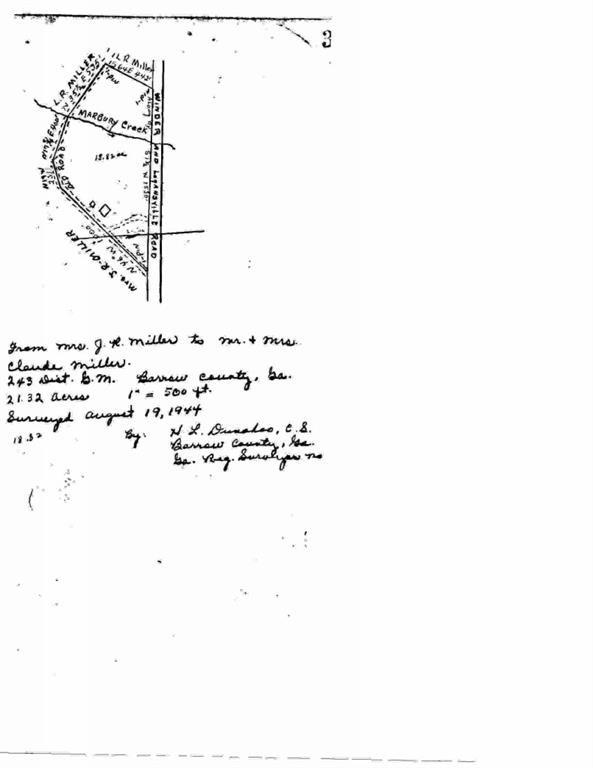 3
L.R. Miller
L.R. MILLER
MARBURY Creek
18.82 ac
OLD ROAD
WINDER AND LOGANSVILLE ROAD
N 46 W
Mrs J.R. MILLER
From Mrs. J. R. Miller to Mr. + Mrs.
Claude Miller.
243 Dist. G.M. Barrow County, Ga.
21.32 Acres 1" = 500 ft.
Surveyed August 19, 1944
18.82
By: H L. Dunahoo, C.S.
Barrow County, Ga.
Ga. Reg. Surveyor no